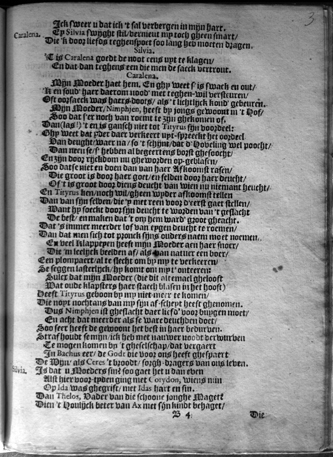 3
Ick sweer u dat ick 't sal verbergen in mijn hart.
Caralena. Ey Silvia swijght stil/ verniert my toch gheen smart/
Die 'k door liefds teghenspoet soo lang heb moeten dragen.
Silvia.
'T is Caralena goedt de noot eens uyt te klagen/
En dat dan teghens een die men de saeck vertrout.
Caralena.
Mijn Moeder haet hem, En ghy weet s' is swack en out/
Ik en soud' haer daerom nood' met teghen-wil versteuren/
Oft oorsaeck was haers doots/ als 't lichtlijck kond' gebeuren.
Mijn Moeder, Nimphjen, heeft by jongs gewoont in 't Hof/
Soo dat s'er noch van roemt te zijn ghekomen of.
Dan (las!) 't en is gansch niet tot Tityrus sijn voordeel:
Ghy weet dat daer daer verkeert upt-spreeckt het oordeel
Van deught/ waer na/ so 't schijnt/ dat d' Hoveling wel poocht/
Dan meest s' hebben al begeertens borst ghesoocht/
En zijn door rijckdom nu gheworden op-geblasen/
Soo datse niet en doen dan van haer Afkoomst rasen/
Die groot is door haer goet/ en selden door haer deucht/
Of 't is groot door diens deucht van wien nu niemant heucht/
En Tityrus ken/ noch wil gheen wyder afkoomst tellen
Dan van sijn selven/ die 'y met reen voor d'eerst gaet stellen/
Want hy soeckt door sijn deucht te worden van 't geslacht
De best' en maken dat t' op hem werd' groot gheacht.
Dat 's immer meerder lof van eygen deucht te roemen/
Dan dat men sich tot pronck sijns ouders naem moet noemen.
En veel klappeyen heeft mijn Moeder aen haer snoer/
Die 'm leelijck beelden af/ als van natuer een boer/
Een plompaert/ al te slecht om by my te verkeeren/
Se seggen lasterlijck/ hy komt om my t' onteeren:
Sulcx dat mijn Moeder (die dit altemael gheloost
Wat oude klapsters haer staech blasen in het hooft)
Deest Tityrus geboon by my niet meer te komen/
Die noyt nochtans van my sijn af-scheyt heeft ghenomen.
Dus Nimphjen ist ghestacht daer liefd' voor buygen moet/
En acht dat meerder als se ware deuchden doet:
Soo seer heeft de gewoont het best in haer bedurven.
Strafhoude fenijn/ ick heb met nauwer noodt verworven
Te mogen komen by 't gheselschap/ dat vergaert
In Bachus eer/ de Godt die voor ons heeft ghespaert
De Wijn/ als Ceres 't broodt/ sorgh-dragers van ons leven.
Silvia. Is dat u Moeders sin? soo gaet het u dan even
Als't hier voor-tyden ging met Corydon, wiens min
Op Ida was ghegrift/ met Idas hart en sin.
Dan Thelos, Vader van die schoone jonghe Maget
Dien 't Houlijck beter van Ax met sijn kindt behaget/
B 4. Die